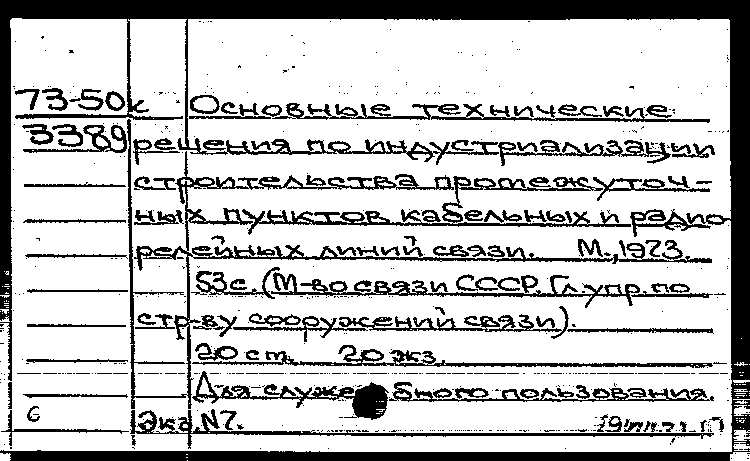 73-50к Основные технические
3389 решения по индустриализации
строительства промежуточ-
ных пунктов кабельных и радио-
релейных линий связи. М., 1973.
53с. (М-во связи СССР. Гл. упр. по
стр-ву сооружений связи).
20 см. 20 экз.
Для служебного пользования.
6 Экз. N7.